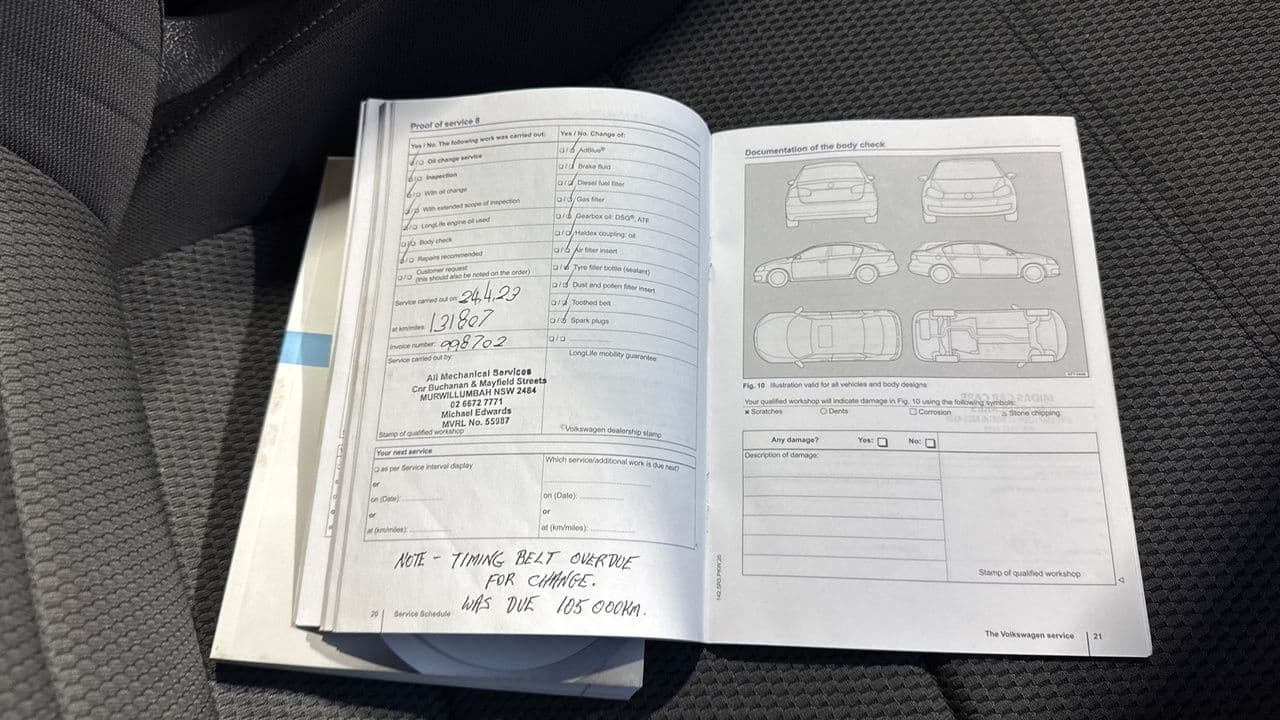 Proof of service 8
Yes / No. The following work was carried out:
Oil change service
Inspection
With oil change
With extended scope of inspection
LongLife engine oil used
Body check
Repairs recommended
Customer request
(this should also be noted on the order)
Service carried out on: 24.4.23
at km/miles: 131807
Invoice number: 998702
Service carried out by:
All Mechanical Services
Cnr Buchanan & Mayfield Streets
MURWILLUMBAH NSW 2484
02 6672 7771
Michael Edwards
MVRL No. 55987
Stamp of qualified workshop
Yes / No. Change of:
AdBlue®
Brake fluid
Diesel fuel filter
Gas filter
Gearbox oil: DSG®, ATF
Haldex coupling: oil
Air filter insert
Tyre filler bottle (sealant)
Dust and pollen filter insert
Toothed belt
Spark plugs
LongLife mobility guarantee
Volkswagen dealership stamp
Your next service
as per Service interval display
or
on (Date):
or
at (km/miles):
Which service/additional work is due next?
on (Date):
or
at (km/miles):
NOTE - TIMING BELT OVERDUE
FOR CHANGE.
WAS DUE 105 000KM.
20 Service Schedule
Documentation of the body check
Fig. 10 Illustration valid for all vehicles and body designs
Your qualified workshop will indicate damage in Fig. 10 using the following symbols:
× Scratches ○ Dents □ Corrosion △ Stone chipping
Any damage? Yes: □ No: □
Description of damage:
Stamp of qualified workshop
The Volkswagen service 21